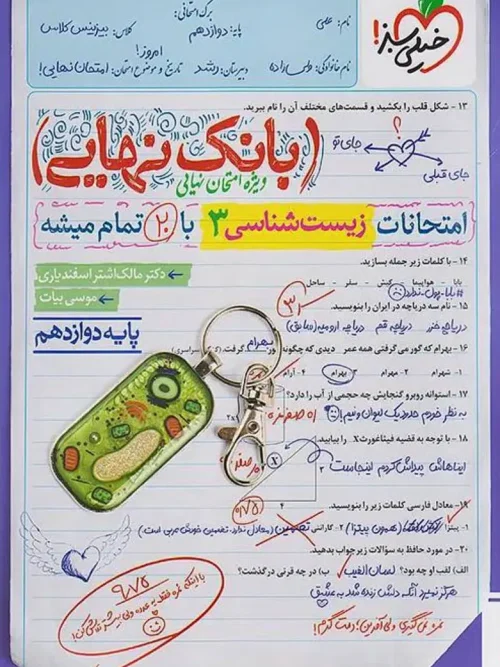 برگ امتحانی:
نام: علمی
پایه: دوازدهم
کلاس: بیزینس کلاس
خیلی سبز!
امروز!
نام خانوادگی:
دبیرستان: رشد
تاریخ و موضوع امتحان: امتحان نهایی!
۱۳ - شکل قلب را بکشید و قسمت‌های مختلف آن را نام ببرید.
؟
جای تو
جای قبلی
(بانک نهایی)
ویژه امتحان نهایی
امتحانات زیست‌شناسی ۳ با ۲۰ تمام میشه
۱۴ - با کلمات زیر جمله بسازید.
بابا - هواپیما - کیش - سفر - ساحل
#بابا_پول_ندارد
دکتر مالک‌اشتر اسفندیاری
موسی بیات
۱۵ - نام سه دریاچه در ایران را بنویسید.
دریاچه خزر دریاچه قم دریاچه ارومیه (سابق)
پایه دوازدهم
۱۶ - بهرام که گور می‌گرفتی همه عمر دیدی که چگونه گور بهرام گرفت.
۱- شهرام ۲- مهرام ۳- بهرام ۴- آرام
۱۷ - استوانه روبرو گنجایش چه حجمی از آب را دارد؟
به نظر خودم حدود یک لیوان و نیم!
۱۸ - با توجه به قضیه فیثاغورث X را بیابید.
ایناهاش پیداش کردم اینجاست
X
صفر
۰/۷۵
۱۹ - معادل فارسی کلمات زیر را بنویسید.
۱- پیتزا (همون پیتزا) ۲- گارانتی تضمین (معادل ندارد. تضمین خودش عربی است.)
۲۰ - در مورد حافظ به سؤالات زیر جواب بدهید.
الف) لقب او چه بود؟ لسان الغیب ب) در چه قرنی درگذشت؟
هرگز نمیرد آنکه دلش زنده شد به عشق
۹/۷۵
با اینکه نمره فقط یه عدده ولی بیشتر تلاش کن!
نمره نمی‌گیری ولی آفرین، دمت گرم!